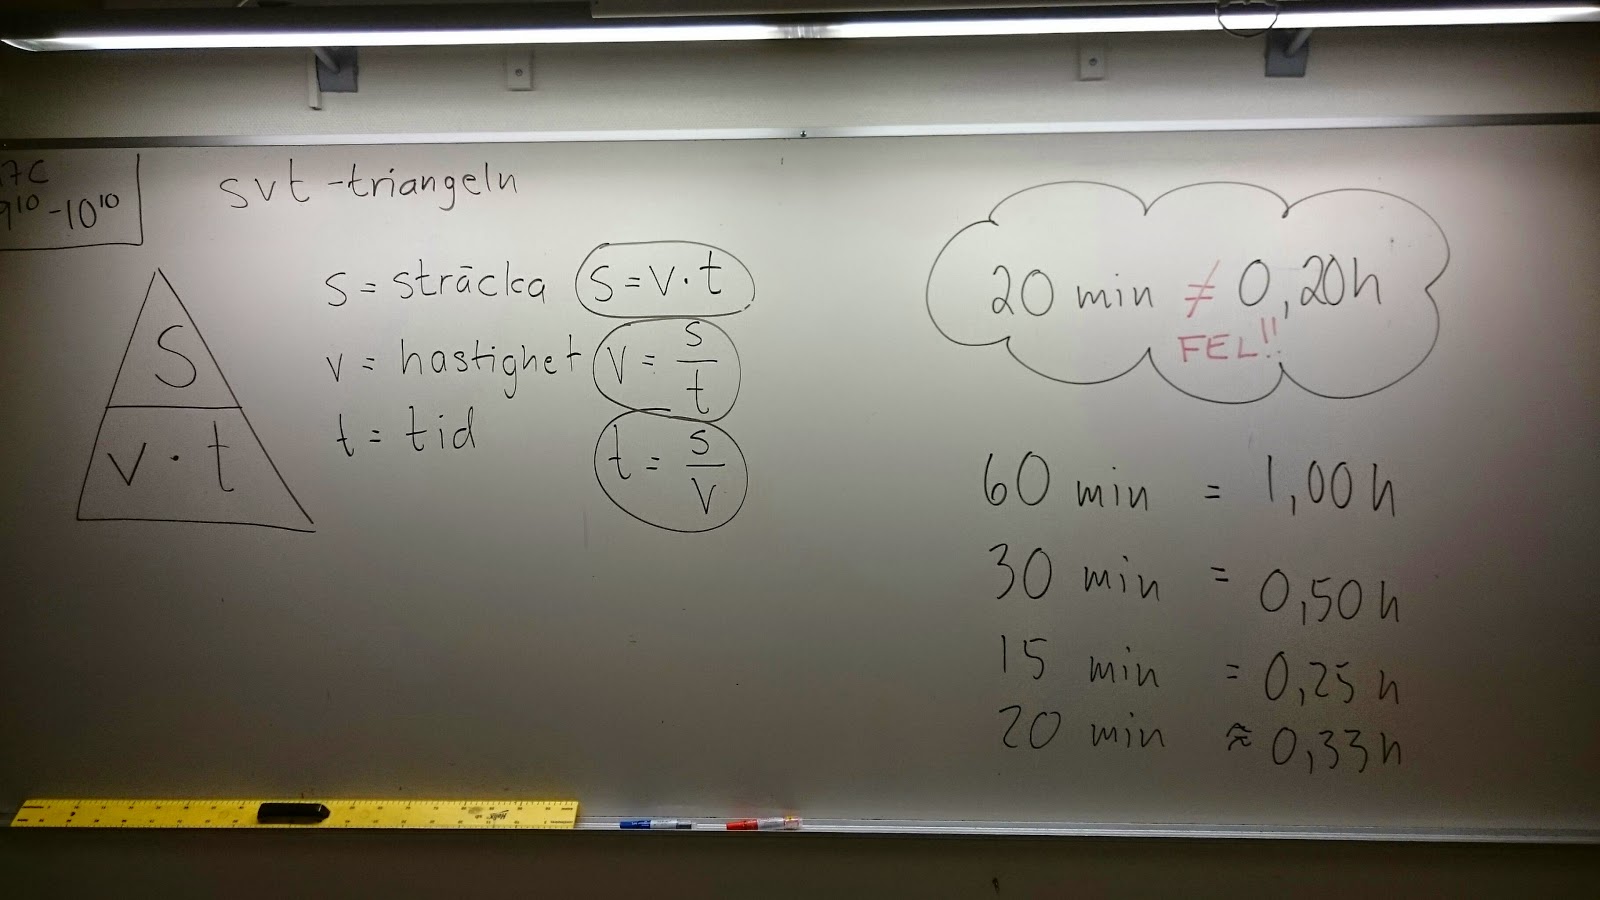 7C
9¹⁰-10¹⁰
svt-triangeln
S
v · t
s = sträcka s = v · t
v = hastighet v = s/t
t = tid t = s/v
20 min ≠ 0,20h
FEL!!
60 min = 1,00 h
30 min = 0,50 h
15 min = 0,25 h
20 min ≈ 0,33 h